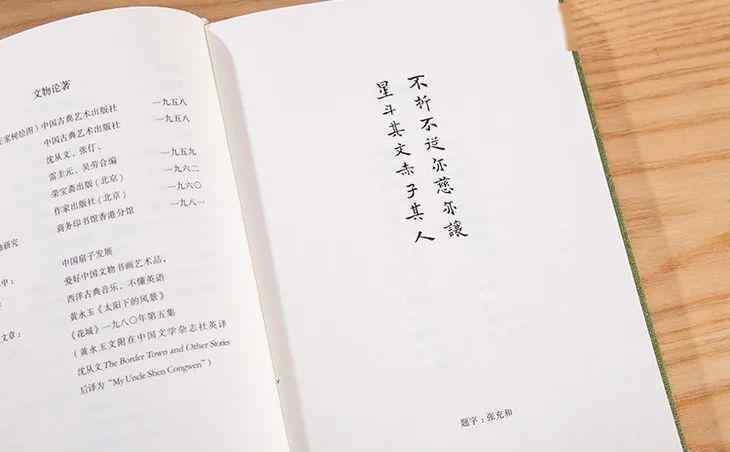 文物论著
家树绘图）中国古典艺术出版社 一九五八
中国古典艺术出版社 一九五八
沈从文、张仃、
雷圭元、吴劳合编 一九五九
荣宝斋出版（北京） 一九六二
作家出版社（北京） 一九六〇
商务印书馆香港分馆 一九八一
研究
中国扇子发展
中： 爱好中国文物书画艺术品，
西洋古典音乐，不懂英语
黄永玉《太阳下的风景》
文章： 《花城》一九八〇年第五集
（黄永玉文附在中国文学杂志社英译
沈从文The Border Town and Other Stories
后译为“My Uncle Shen Congwen”）
不折不從亦慈亦讓
星斗其文赤子其人
题字：张充和